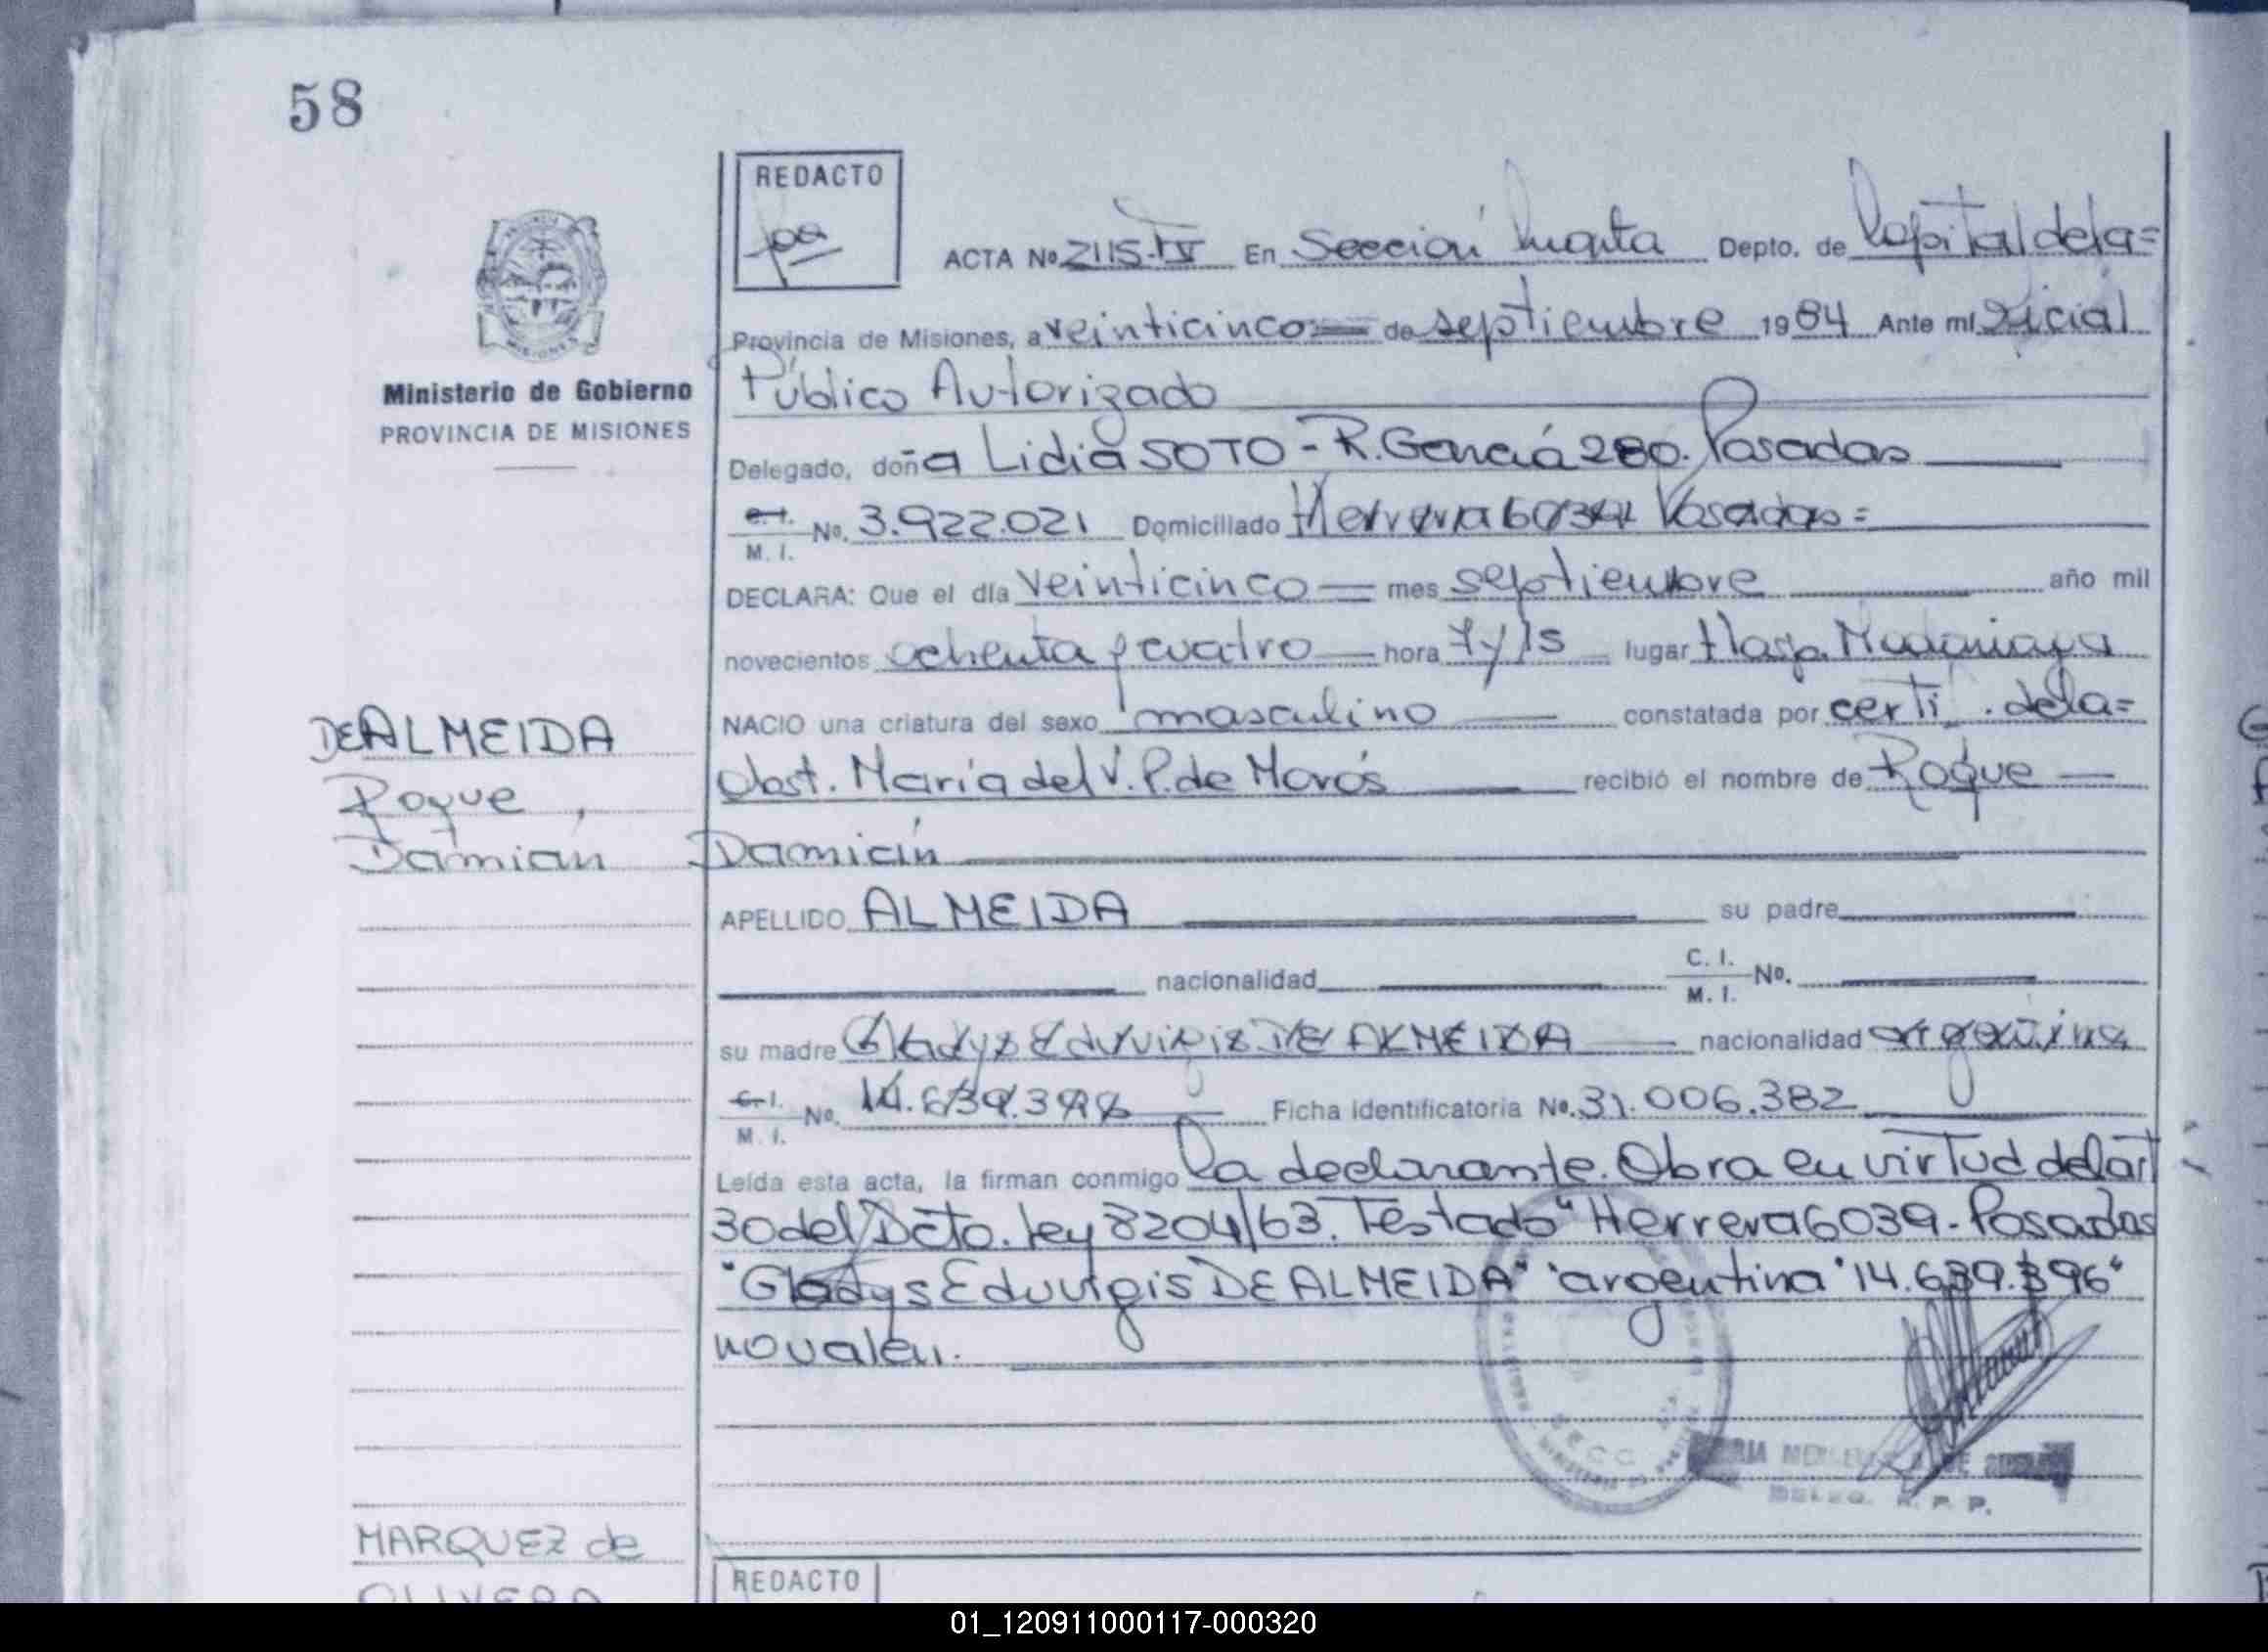 58
REDACTO
ACTA Nº 2115-IV En Sección Cuarta Depto. de Capital de la=
Provincia de Misiones, a veinticinco= de septiembre 1984 Ante mí Oficial
Público Autorizado
Ministerio de Gobierno
PROVINCIA DE MISIONES
Delegado, doña Lidia SOTO - R. García 280. Posadas
C. I. M. I. No. 3.922.021 Domiciliado Herrera 6039 Posadas=
DECLARA: Que el día veinticinco= mes septiembre año mil
novecientos ochenta y cuatro hora 7 y 15 lugar Hosp. Madariaga
NACIO una criatura del sexo masculino constatada por certi. de la=
Obst. María del V. P. de Morós recibió el nombre de Roque
Damián
DE ALMEIDA
Roque,
Damián
APELLIDO ALMEIDA su padre
nacionalidad C. I. M. I. No.
su madre Gladys Eduvigis DE ALMEIDA nacionalidad argentina
C. I. M. I. No. 14.639.396 Ficha identificatoria No. 31.006.382
Leída esta acta, la firman conmigo la declarante. Obra en virtud del art
30 del Dcto. Ley 8204/63. Testado "Herrera 6039 - Posadas
"Gladys Eduvigis DE ALMEIDA" "argentina" 14.639.396"
no valen.
DELEG. R. P. P.
MARQUEZ de
OLIVERA
REDACTO
01_120911000117-000320